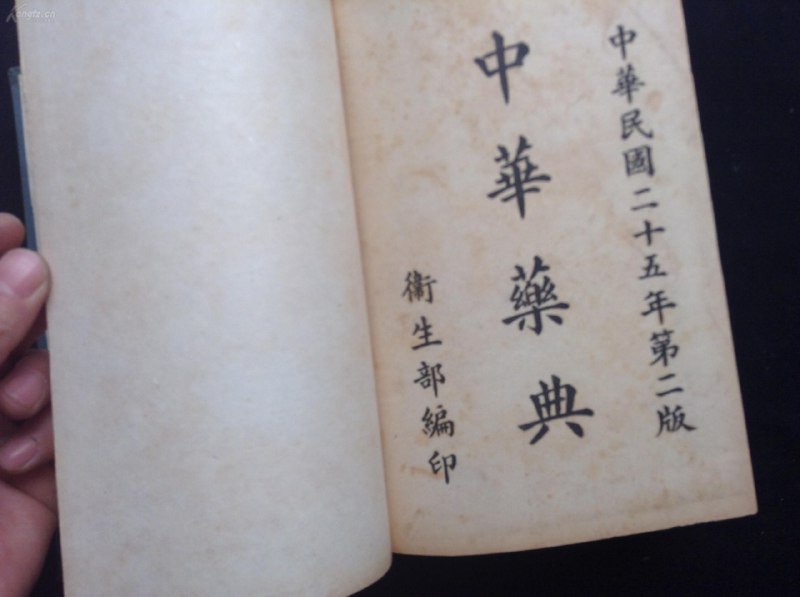 中華民國二十五年第二版
中華藥典
衛生部編印